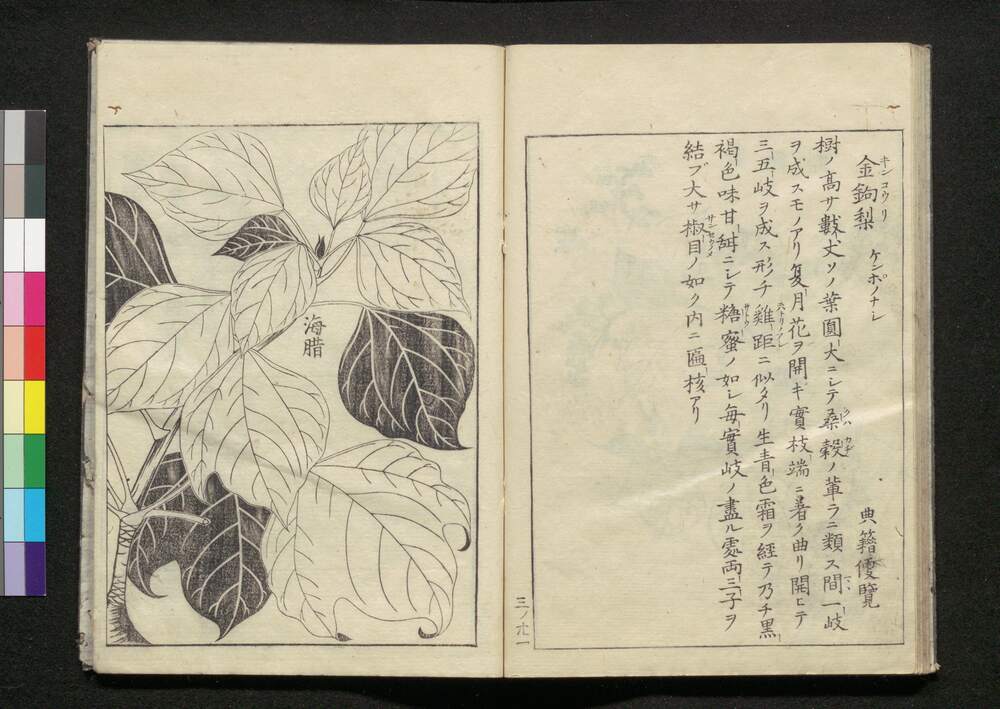 金鉤梨 ケンポノナシ 典籍便覽
キンコウリ
樹ノ高サ數丈ソノ葉圓大ニシテ桑穀ノ葉ニ類ス間一岐
クハ カヂ
ヲ成スモノアリ夏月花ヲ開キ實枝端ニ著ク曲リ開ヒテ
三五岐ヲ成ス形チ雞距ニ似タリ生青色霜ヲ經テ乃チ黒
褐色味甘甜ニシテ糖蜜ノ如シ毎實岐ノ盡ル處両三子ヲ
サトウ
結ブ大サ椒目ノ如ク内ニ匾核アリ
三ノ
海腊